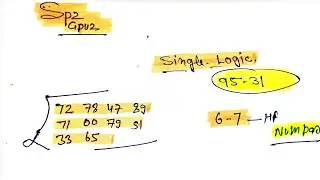 Sp2
Single Logic
95-31
72 78 47 89
71 00 79 31
33 65
6-7 HP